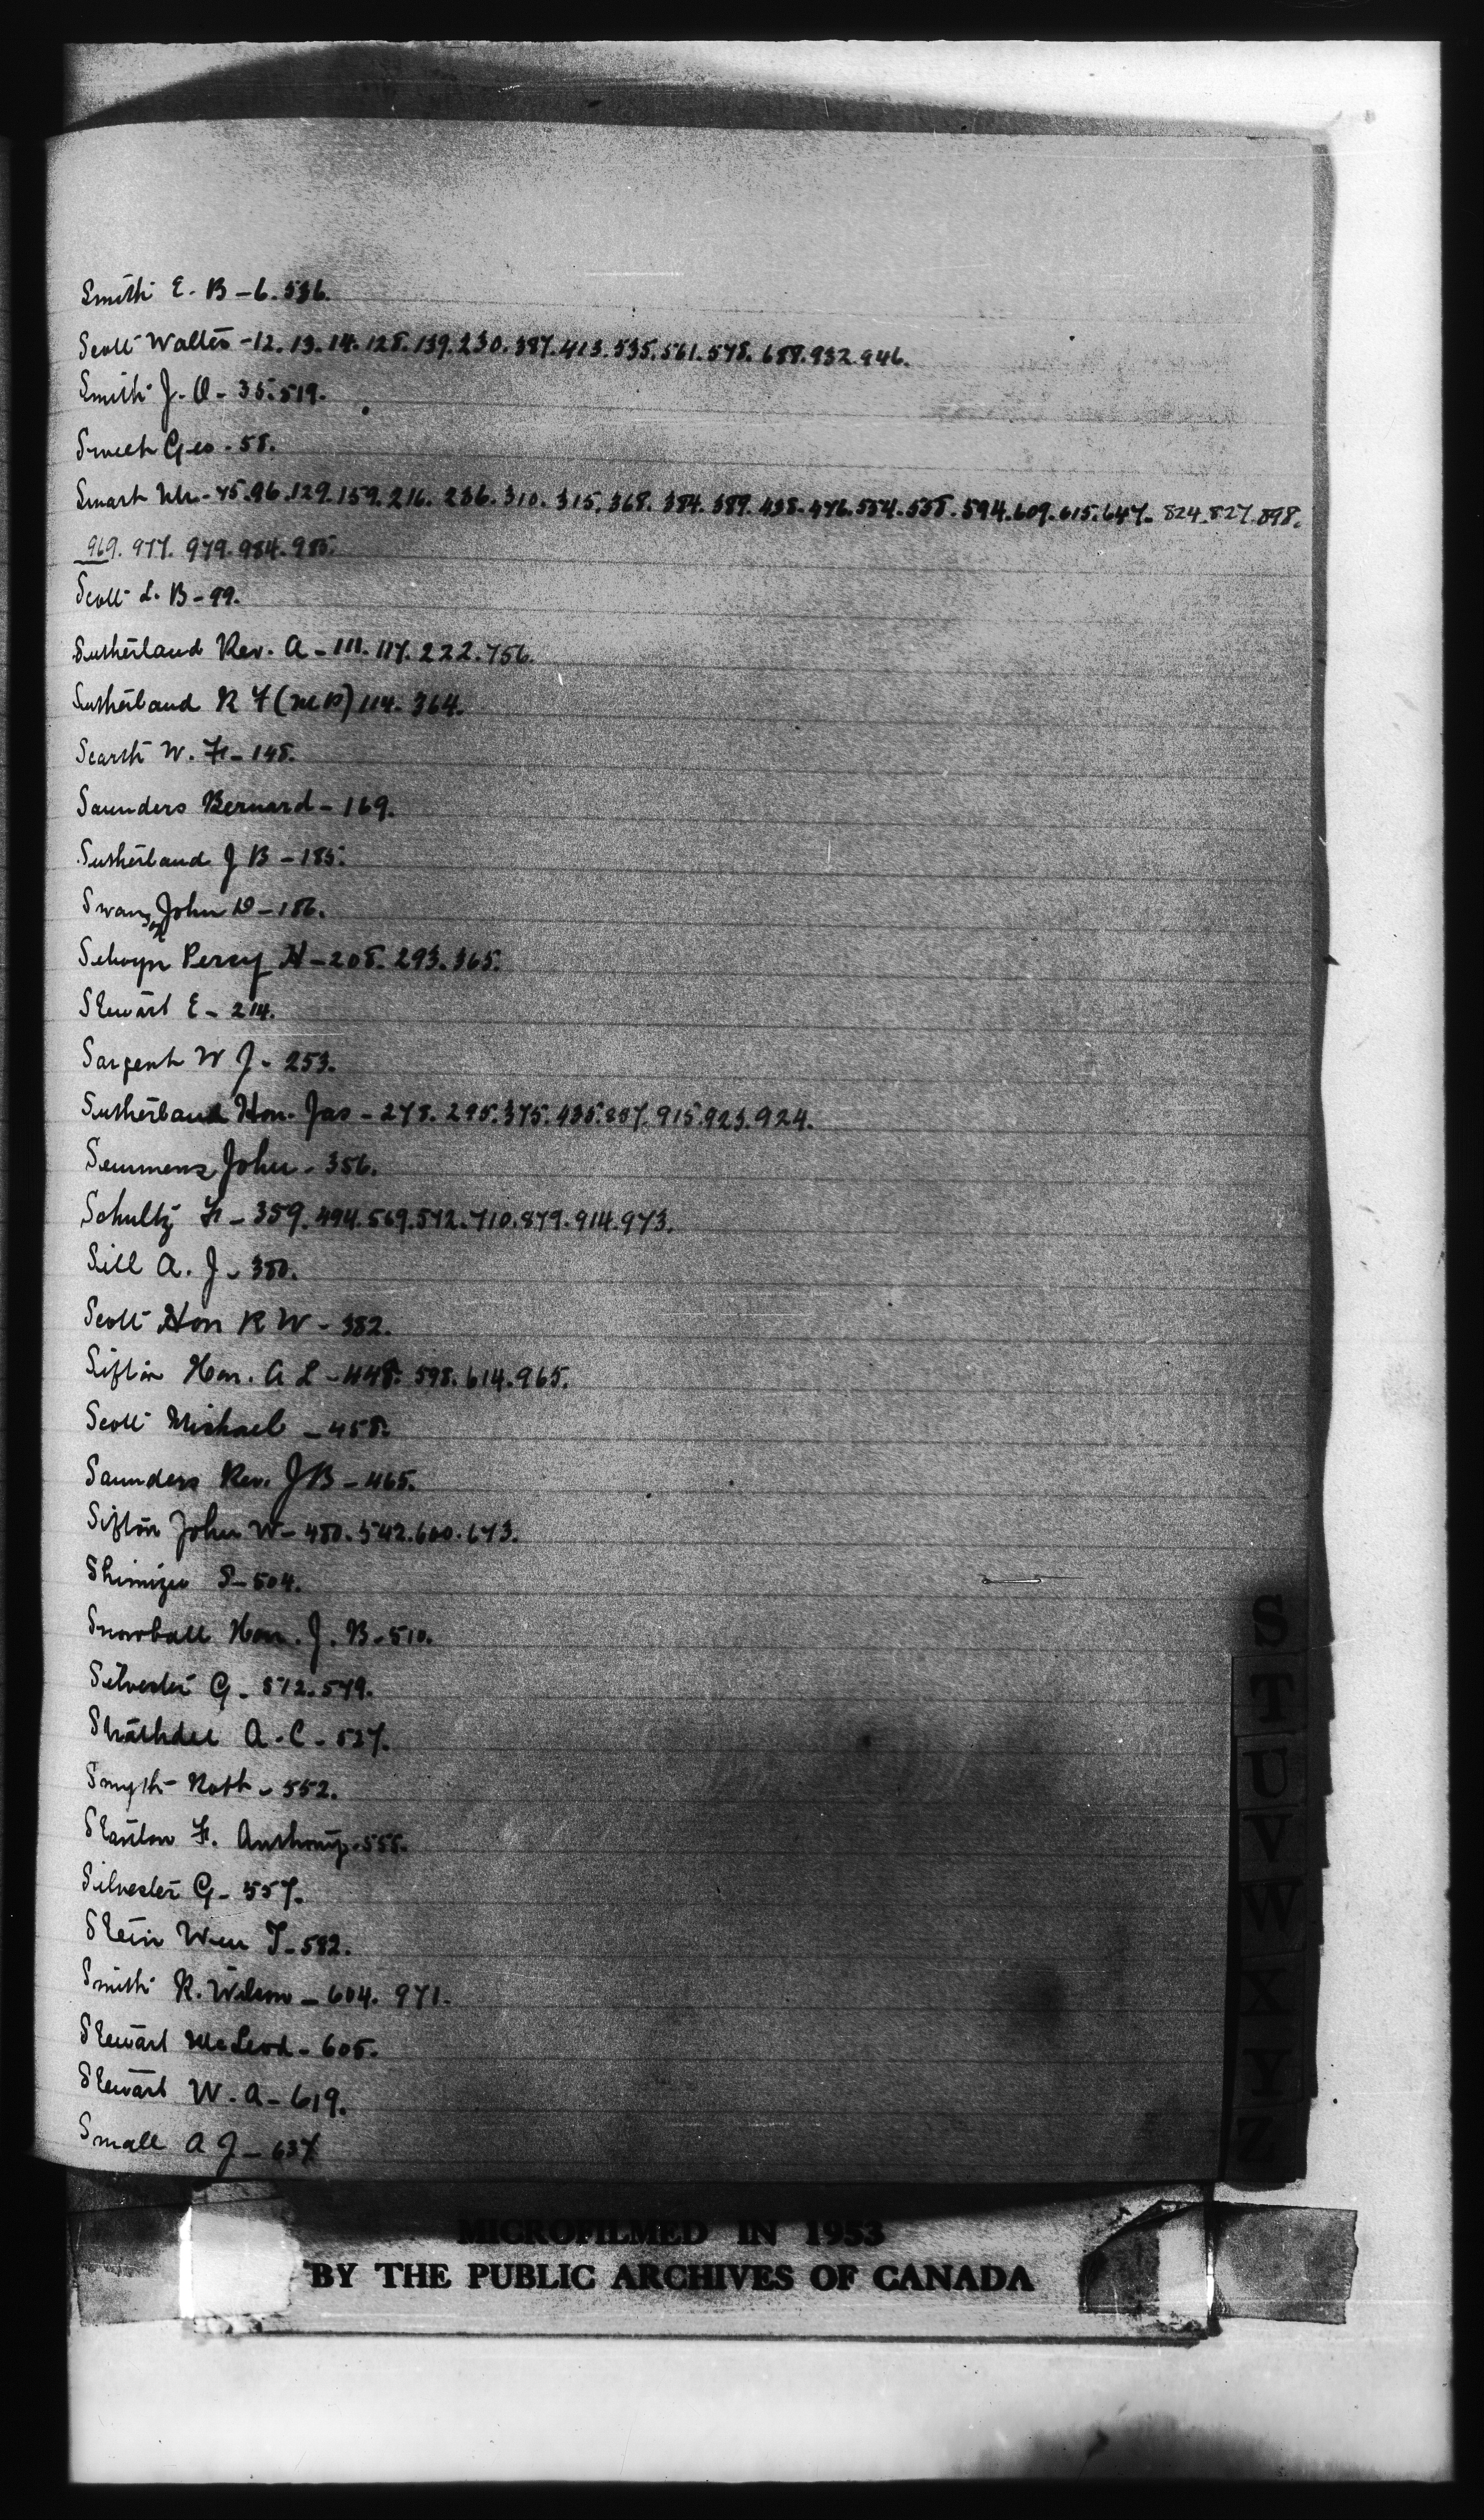 Smith E. B - 6. 536.
Scott Walter - 12. 13. 14. 128. 139. 230. 387. 413. 535. 561. 578. 688. 932. 946.
Smith J. O - 35. 519.
Geo - 58.
Smart Mr - 75. 96. 129. 159. 216. 236. 310. 315. 368. 384. 389. 438. 476. 554. 558. 594. 609. 615. 647. 824. 827. 898.
969. 977. 979. 984. 985.
Scott L. B - 99.
Sutherland Rev. A - 111. 117. 222. 756.
Sutherland R F (M P) 114. 364.
Scarth W. F - 148.
Saunders Bernard - 169.
Sutherland J B - 185.
Swanson John D - 186.
Selwyn Percy H - 208. 293. 365.
Stewart E - 214.
Sargent W J - 253.
Sutherland Hon. Jas - 278. 295. 375. 435. 857. 915. 923. 924.
Semmens John - 356.
Schultz F - 359. 494. 569. 572. 710. 879. 914. 973.
Sill A. J - 380.
Scott Hon R W - 382.
Sifton Hon. A L - 448. 598. 614. 965.
Scott Michael - 458.
Saunders Rev. J B - 465.
Sifton John W - 480. 542. 600. 673.
Shimizu S - 504.
Snowball Hon. J. B - 510.
Silvester G - 512. 549.
Strathdee A. C - 527.
Smyth Robt - 552.
Stanton F. Anthony - 555.
Silvester G - 557.
Stein Wm T - 582.
Smith R. Wilson - 604. 971.
Stewart McLeod - 605.
Stewart W. A - 619.
Small A J - 637
S
T
U
V
W
X
Y
Z
MICROFILMED IN 1953
BY THE PUBLIC ARCHIVES OF CANADA